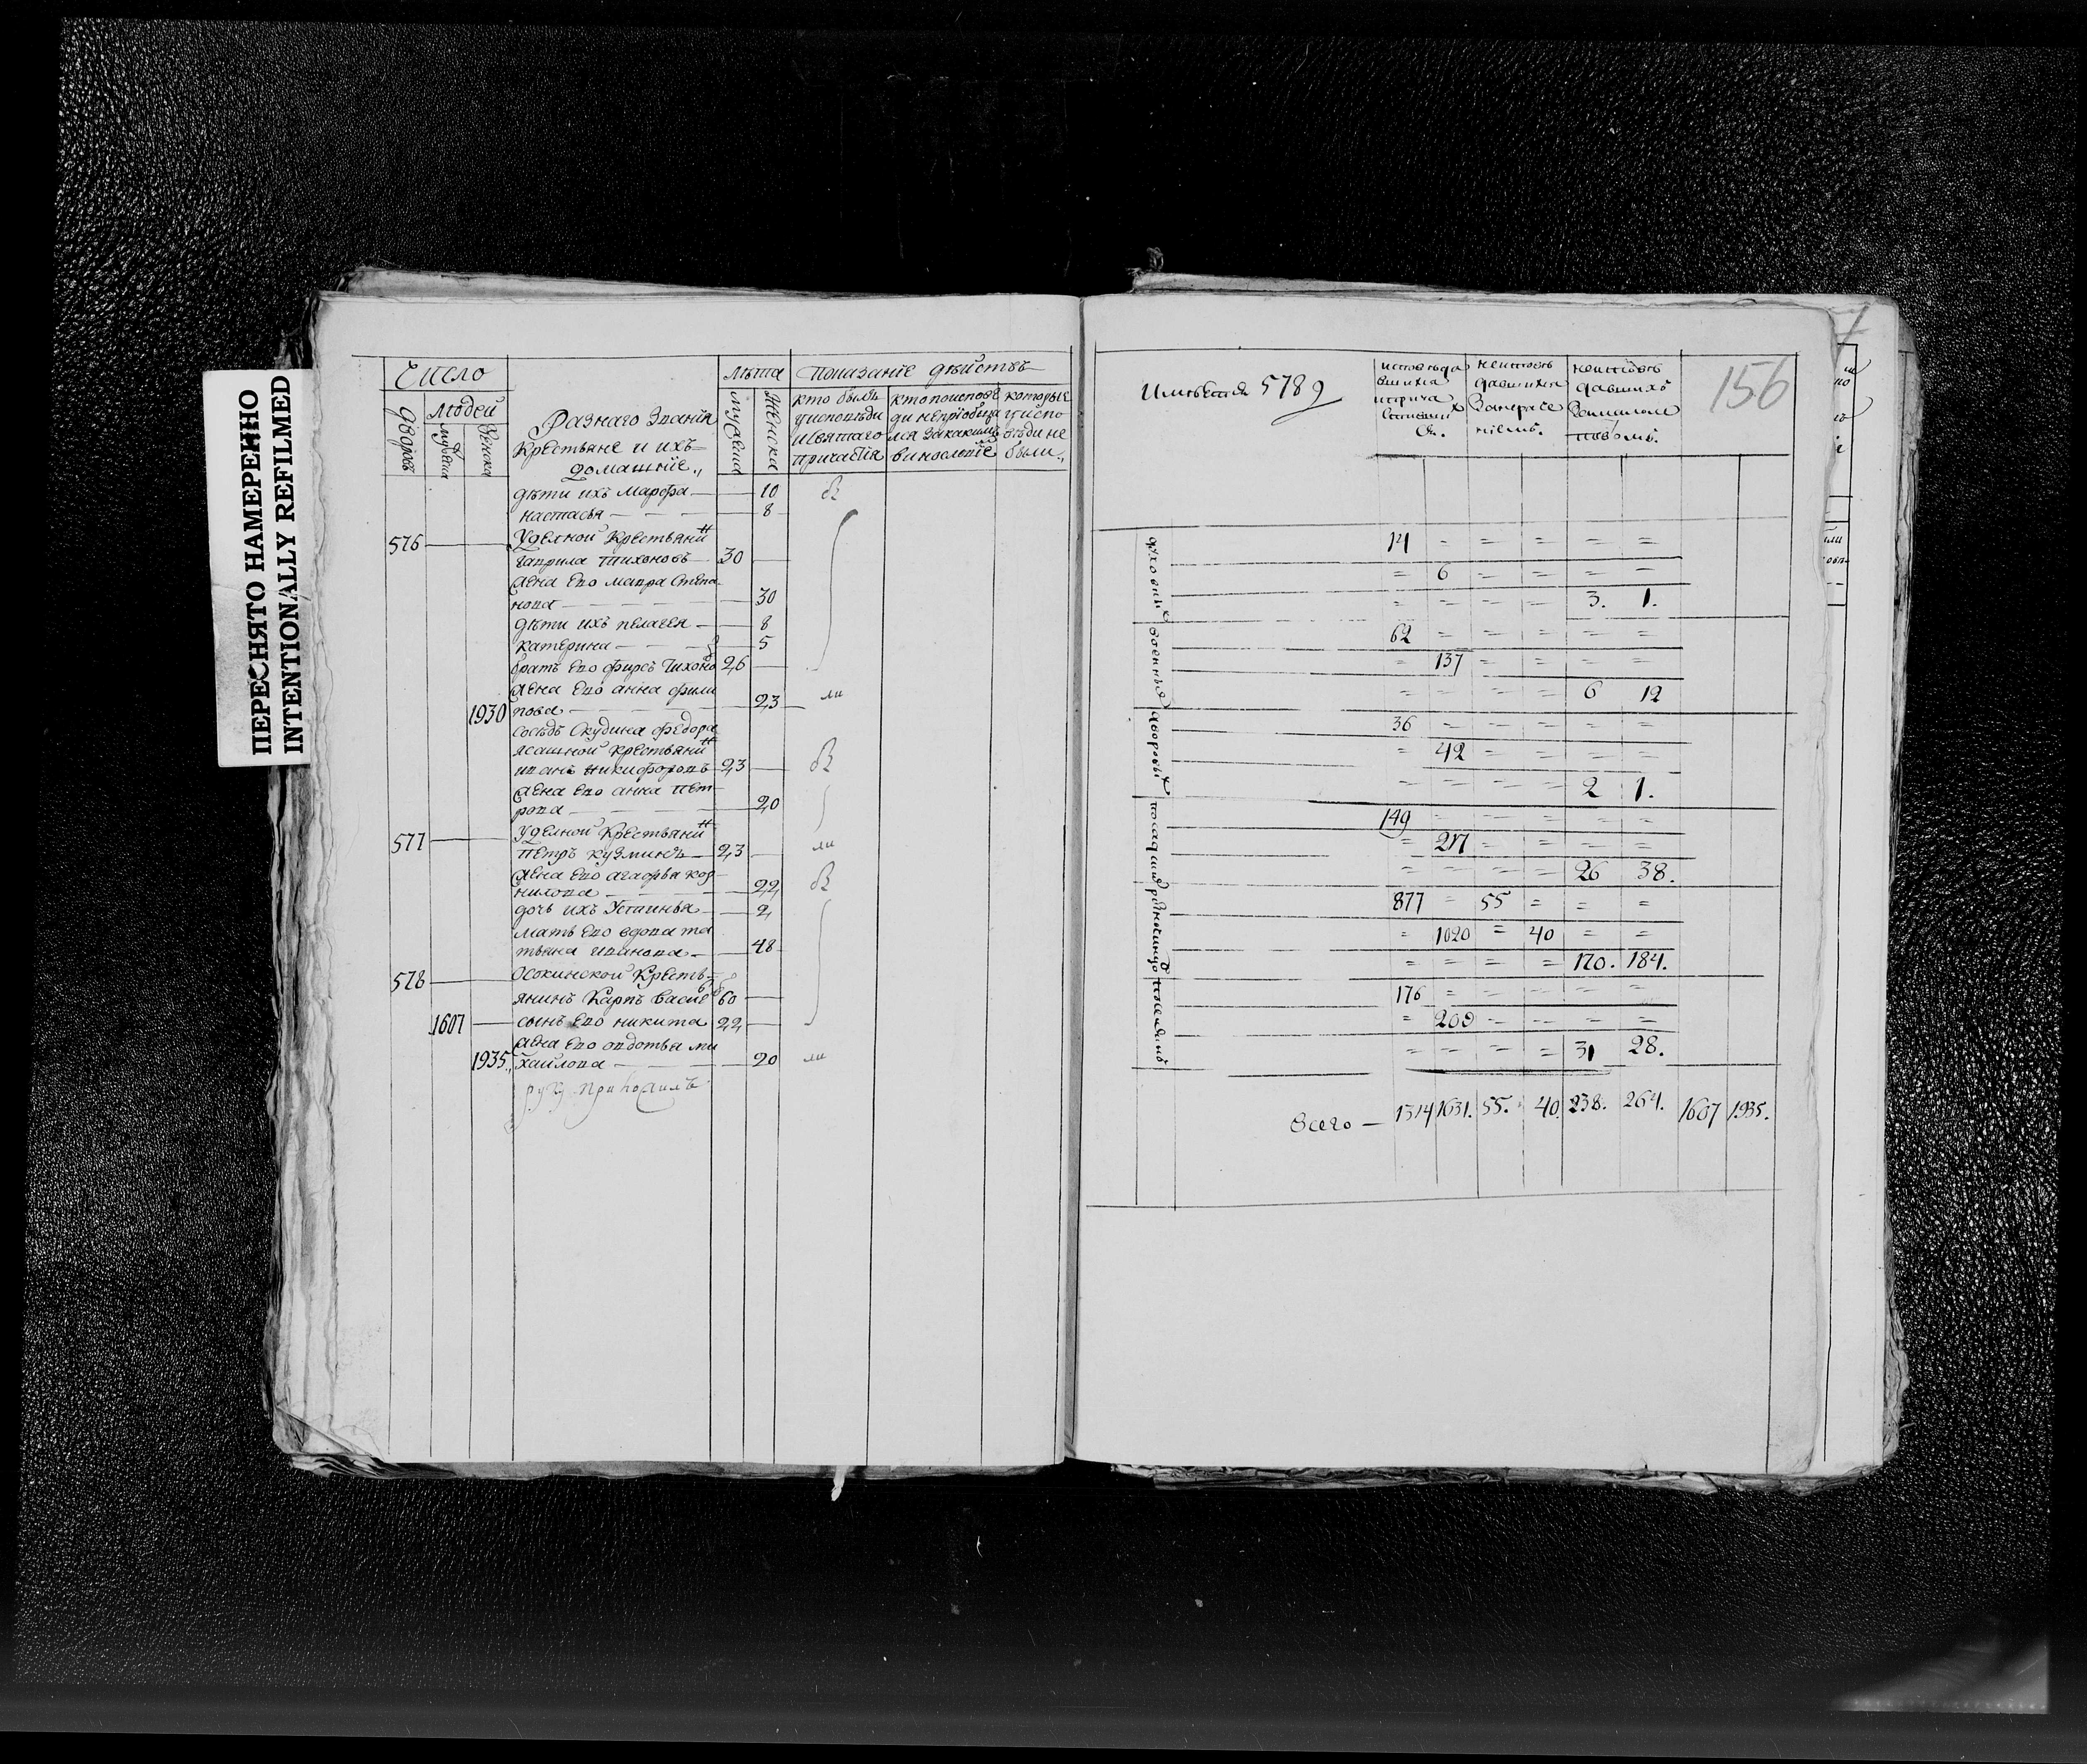 ПЕРЕСНЯТО НАМЕРЕННО
INTENTIONALLY REFILMED
Число
Людей
Дворовъ
Мужеска
Женска
Разнаго Званія
Крестьяне и ихъ
домашніе
Лѣта
Мужеска
Женска
Показаніе дѣйствъ
кто былъ
у исповѣди
и святаго
причастія
кто по испове
ди не пріобща
лся за какимъ
винословіе
которые
у испо
вѣди не
были
дѣти ихъ Марфа 10
настасья 8
576 Уделной Крестьянинъ
гаврила тихоновъ 30
жена Его мавра Степа
нова 30
дѣти ихъ пелагея 8
катерина 5
братъ Его фирсъ Тихоно 26
жена Его анна фили
1930 пова 23
сосѣдъ Скудина федора
ясашной крестьянинъ
иванъ никифоровъ 23
жена Его анна пет
рова 20
577 Уделной Крестьянинъ
петръ кузминъ 23
жена Его агафья кор
нилова 22
дочь ихъ Устинья 2
мать Его вдова та
тьяна иванова 48
578 Осокинской Кресть
янинъ Карпъ Василе 60
1607 сынъ Его никита 22
жена Его овдотья ми
1935 хайлова 20
156
578 д
исповѣда
вшихся
и прича
стивших
ся.
неиспов
давшихся
неиспов
давшихъ
духовные
14 = = = = =
= 6 = = = =
= = = = 3. 1.
военные
62 = = = = =
= 137 = = = =
= = = = 6 12
дворовые
36 = = = = =
= 42 = = = =
= = = = 2 1.
149 = = = = =
= 217 = = = =
= = = = 26 38.
877 = 55 = = =
= 1020 = 40 = =
= = = = 170. 184.
176 = = = = =
= 209 = = = =
= = = = 31 28.
Всего — 1314 1631. 55. 40. 238. 264. 1607 1935.